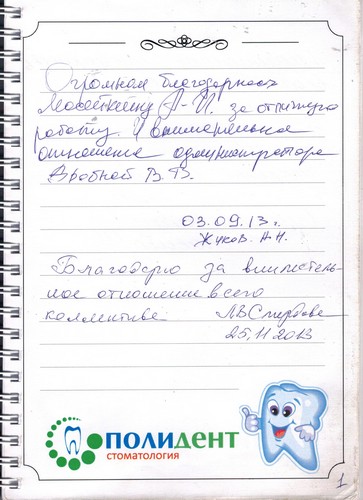 Огромная благодарность
Мосейкину А. И. за отличную
работу. И внимательное
отношение администратора
В. В.
03.09.13г.
Жуков А.Н.
Благодарю за внимательн-
ное отношение всего
коллектива
25.11.2013
ПОЛИДЕНТ
СТОМАТОЛОГИЯ
1